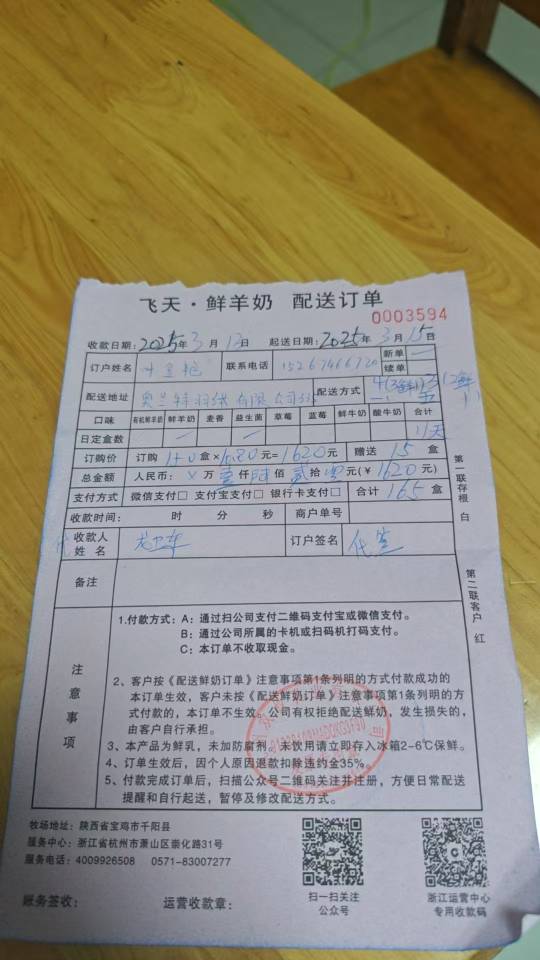 飞天·鲜羊奶 配送订单
0003594
收款日期：2025年3月13日 起送日期：2025年3月15日
订户姓名 联系电话 15267466720 新单
续单
配送地址 配送方式
口味 有机鲜羊奶 鲜羊奶 麦香 益生菌 草莓 蓝莓 鲜牛奶 酸牛奶 合计
日定盒数 11天
订购价 订购 150盒×10.80元=1620元 赠送 15盒
总金额 人民币：×万壹仟陆佰贰拾零元(￥1620元)
支付方式 微信支付□ 支付宝支付□ 银行卡支付□ 合计 165盒
收款时间： 时 分 秒 商户单号
收款人姓名 龙卫东 订户签名 代签
备注
注意事项
1.付款方式：A：通过扫公司支付二维码支付宝或微信支付。
B：通过公司所属的卡机或扫码机打码支付。
C：本订单不收取现金。
2、客户按《配送鲜奶订单》注意事项第1条列明的方式付款成功的
本订单生效，客户未按《配送鲜奶订单》注意事项第1条列明的方
式付款的，本订单不生效。公司有权拒绝配送鲜奶，发生损失的，
由客户自行承担。
3、本产品为鲜乳，未加防腐剂。未饮用请立即存入冰箱2-6℃保鲜。
4、订单生效后，因个人原因退款扣除违约金35%。
5、付款完成订单后，扫描公众号二维码关注并注册，方便日常配送
提醒和自行起送，暂停及修改配送方式。
第一联存根 白
第二联客户 红
牧场地址：陕西省宝鸡市千阳县
服务中心：浙江省杭州市萧山区崇化路31号
服务电话：4009926508 0571-83007277
扫一扫关注
公众号
浙江运营中心
专用收款码
账务签收： 运营收款章：